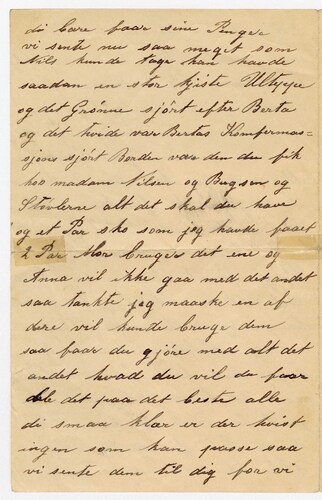 di bare faar sine Penger
vi sente nu saa meget som
Nils kunde tage han havde
saadan en stor kiste Ultøye
og det Grønne sjórt efter Berta
og det hvide var Bertas Komfermas-
sjons sjórt Borden vare den du fik
hoo madam Nilsen og Bugson og
Stovlerne alt det skal du have
og et Par sko som jeg havde faaet
2 Par Mor bruger det ene og
Anna vil ikke gaa med det andet
saa tænkte jeg maaske en af
dere vil kunde bruge dem
saa faar du gjóre med alt det
andet hvad du vil du faar
dele det paa det beste alle
di smaa klar er der hvist
ingen som kan passe saa
vi sente dem til dig for vi